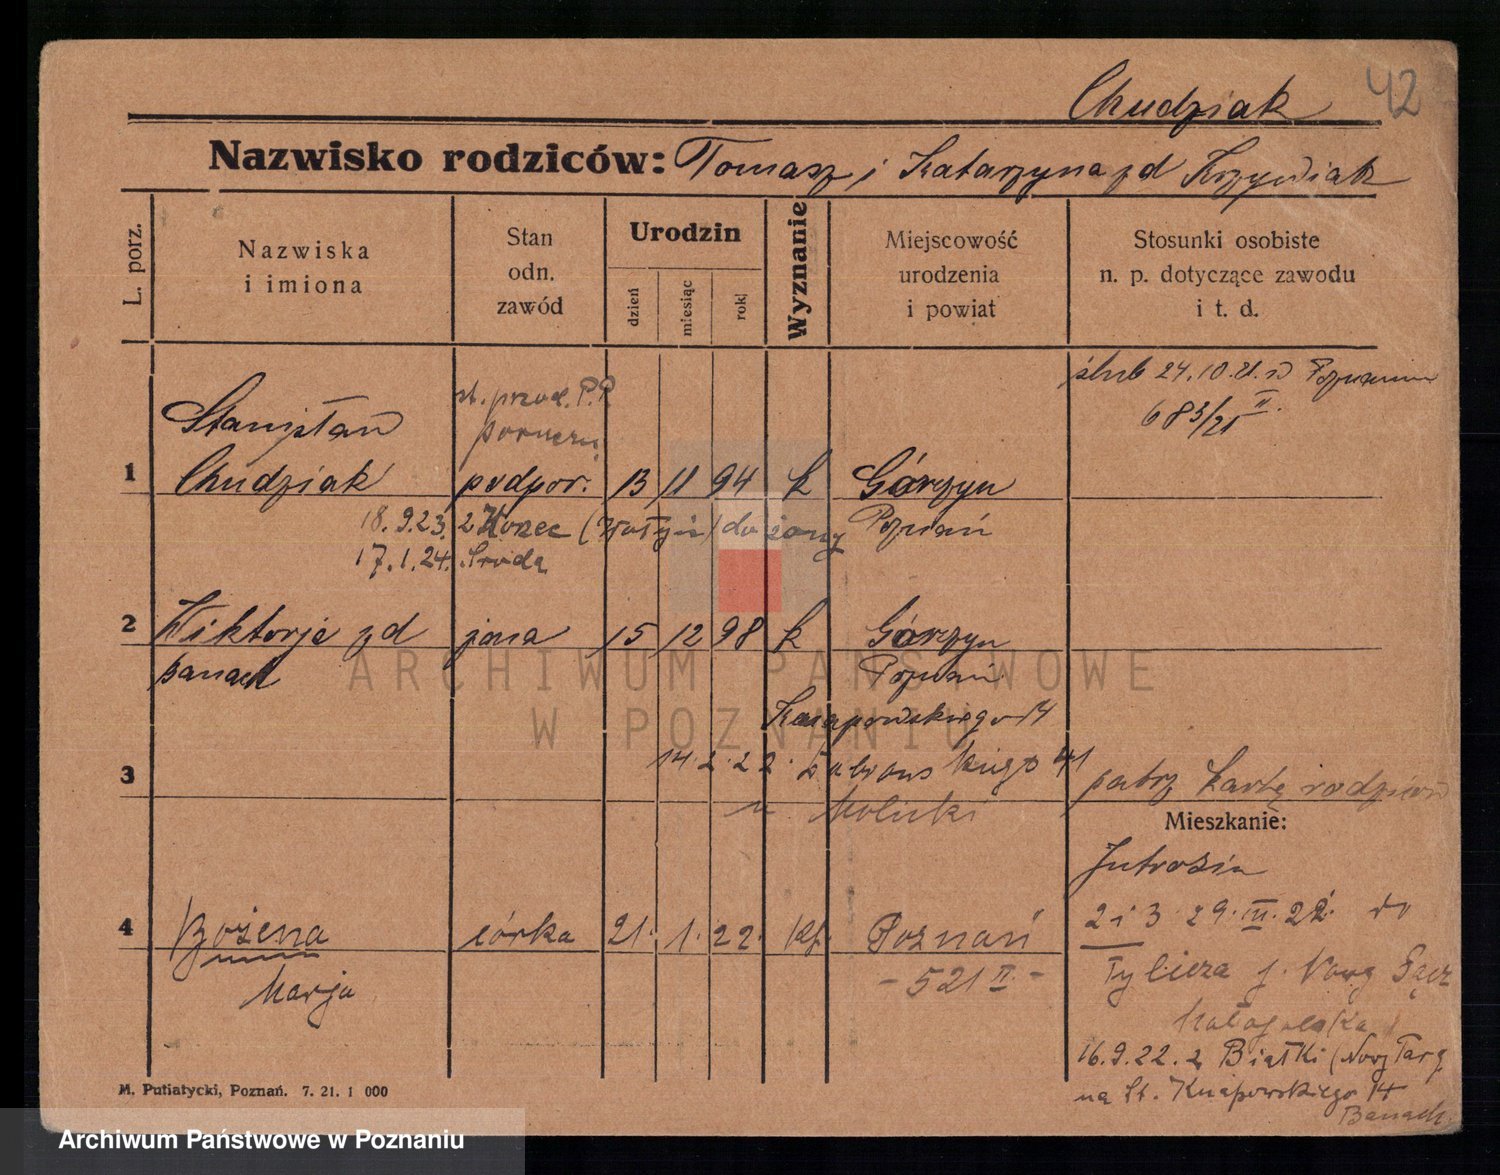 Chudziak 42
Nazwisko rodziców: Tomasz i Katarzyna zd Krzywiak
L. porz.
Nazwiska
i imiona
Stan
odn.
zawód
Urodzin
dzień
miesiąc
rok
Wyznanie
Miejscowość
urodzenia
i powiat
Stosunki osobiste
n. p. dotyczące zawodu
i t. d.
ślub 24.10.21. w Poznaniu
683/21 II.
st. przod. P.P.
1
Stanisław
Chudziak podpor. 13 11 94 k Górzyn
Poznań
18.9.23. z Korzec (Wołyń) do żony
17.1.24. Środa
2
Wiktorja zd żona 15 12 98 k Górzyn
Banach Poznań
Knapowskiego 14
3
14.2.22. 41
u
patrz kartę rodziców
Mieszkanie:
Jutrosin
2 i 3 29.III.22. do
Tylicza p. Nowy Sącz
Małopolska
16.9.22. z Białki (Nowy Targ
na St. Knapowskiego 14
Banach
4
Bożena córka 21. 1. 22. kat. Poznań
Marja - 521 II. -
M. Putiatycki, Poznań. 7. 21. 1 000
ARCHIWUM PAŃSTWOWE
W POZNANIU
Archiwum Państwowe w Poznaniu